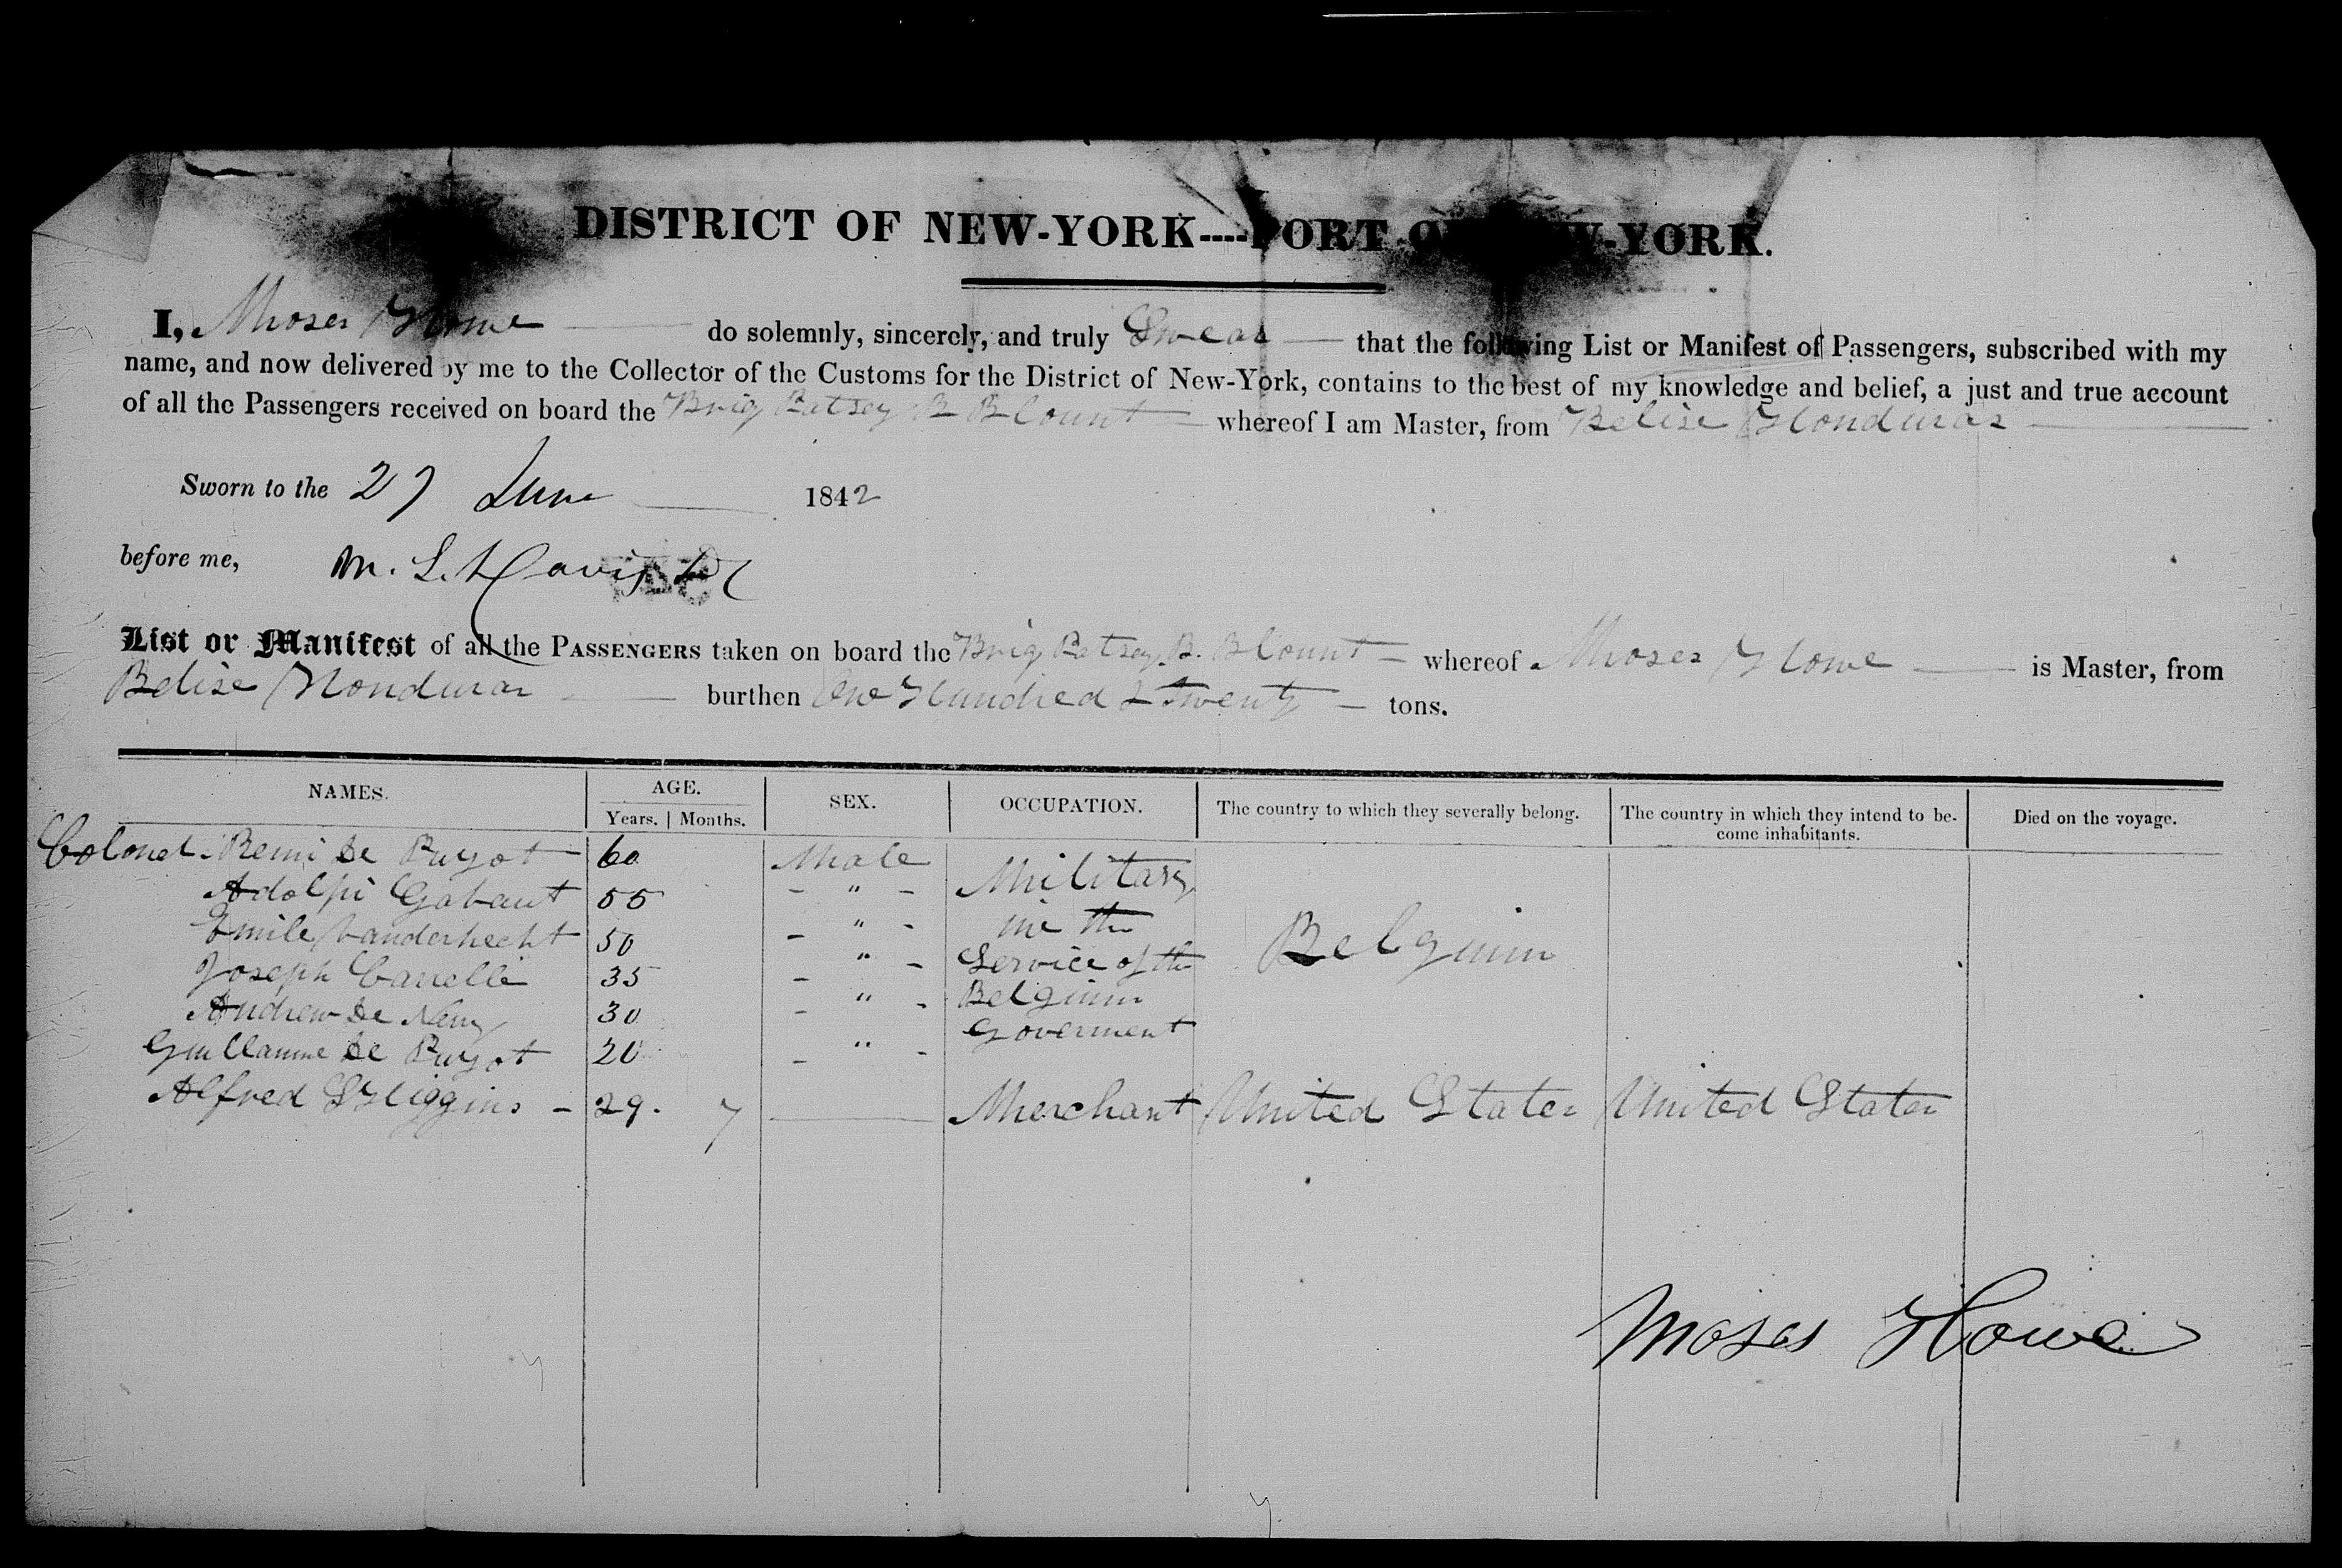 DISTRICT OF NEW-YORK----PORT OF NEW-YORK.
I, Moses Howe do solemnly, sincerely, and truly Swear that the following List or Manifest of Passengers, subscribed with my
name, and now delivered by me to the Collector of the Customs for the District of New-York, contains to the best of my knowledge and belief, a just and true account
of all the Passengers received on board the Brig Betsey B Blount whereof I am Master, from Belise Honduras
Sworn to the 27 June 1842
before me, M. L. Davis
List or Manifest of all the PASSENGERS taken on board the Brig Betsey B. Blount whereof Moses Howe is Master, from
Belise Honduras burthen One Hundred & Twenty tons.
NAMES. AGE. SEX. OCCUPATION. The country to which they severally belong. The country in which they intend to be-
come inhabitants. Died on the voyage.
Years. Months.
Colonel Remi De Puyot 60 Male Military
Adolphi Gabaut 55 " in the
Emile Vanderhecht 50 " Service of the Belguim
Joseph 35 " Belguim
Andrew De 30 " Goverment
Guillaume De Puyot 20 "
Alfred S Higgins 29. Merchant United States United States
Moses Howe